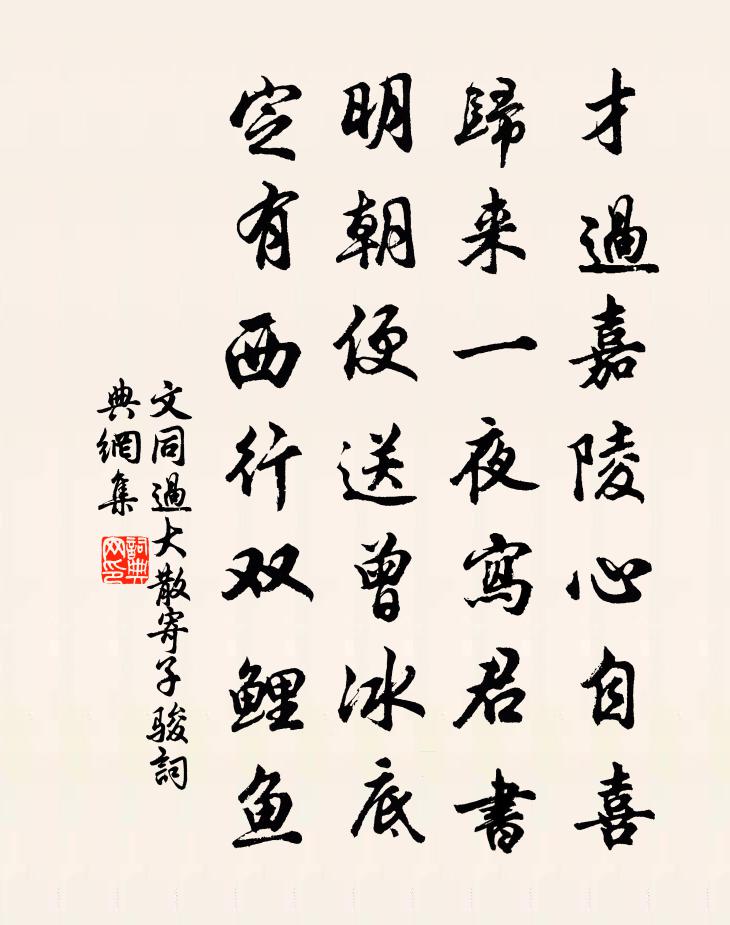 才過嘉陵心自喜
歸来一夜寫君書
明朝便送曾冰底
定有西行双鲤鱼
文同過大散寄子駿詞
典網集
詞典
网